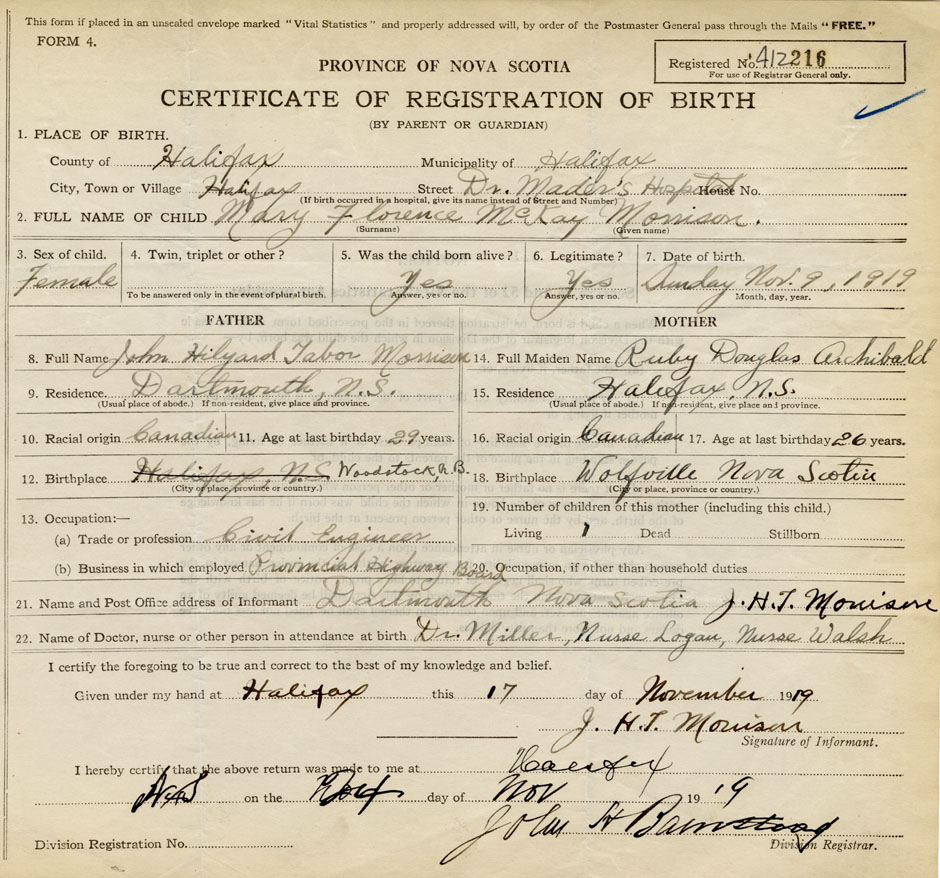 This form if placed in an unsealed envelope marked "Vital Statistics" and properly addressed will, by order of the Postmaster General pass through the Mails "FREE."
FORM 4.
Registered No. 412216
For use of Registrar General only.
PROVINCE OF NOVA SCOTIA
CERTIFICATE OF REGISTRATION OF BIRTH
(BY PARENT OR GUARDIAN)
1. PLACE OF BIRTH.
County of Halifax Municipality of Halifax
City, Town or Village Halifax Street Dr. Mader's Hospital House No.
(If birth occurred in a hospital, give its name instead of Street and Number)
2. FULL NAME OF CHILD Mary Florence McKay Morrison.
(Surname) (Given name)
3. Sex of child. 4. Twin, triplet or other? 5. Was the child born alive? 6. Legitimate? 7. Date of birth.
Female Yes Yes Sunday Nov. 9, 1919
To be answered only in the event of plural birth. Answer, yes or no. Answer, yes or no. Month, day, year.
FATHER MOTHER
8. Full Name John Hilyard Tabor Morrison 14. Full Maiden Name Ruby Douglas Archibald
9. Residence. Dartmouth, N.S. 15. Residence Halifax, N.S.
(Usual place of abode.) If non-resident, give place and province. (Usual place of abode.) If non-resident, give place and province.
10. Racial origin Canadian 11. Age at last birthday 29 years. 16. Racial origin Canadian 17. Age at last birthday 26 years.
12. Birthplace Halifax, N.S. Woodstock, N.B. 18. Birthplace Wolfville Nova Scotia
(City or place, province or country.) (City or place, province or country.)
13. Occupation:— 19. Number of children of this mother (including this child.)
(a) Trade or profession Civil Engineer Living 1 Dead Stillborn
(b) Business in which employed Provincial Highway Board 20. Occupation, if other than household duties
21. Name and Post Office address of Informant Dartmouth Nova Scotia J. H. T. Morrison
22. Name of Doctor, nurse or other person in attendance at birth Dr. Miller, Nurse Logan, Nurse Walsh
I certify the foregoing to be true and correct to the best of my knowledge and belief.
Given under my hand at Halifax this 17 day of November 1919
J. H. T. Morrison
Signature of Informant.
I hereby certify that the above return was made to me at Halifax
on the day of Nov 19 19
John H
Division Registration No. Division Registrar.